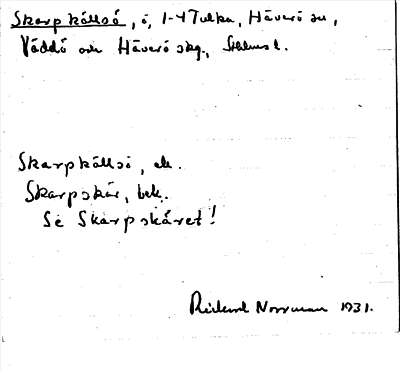 Skarpkällsö, ö, 1-4 Tulka, Häverö sn,
Väddö och Häverö skg., Sthlms l.
Skarpkällsö, ek.
Skarpskär, bek.
Se Skarpskäret!
Rickard Norrman 1931.